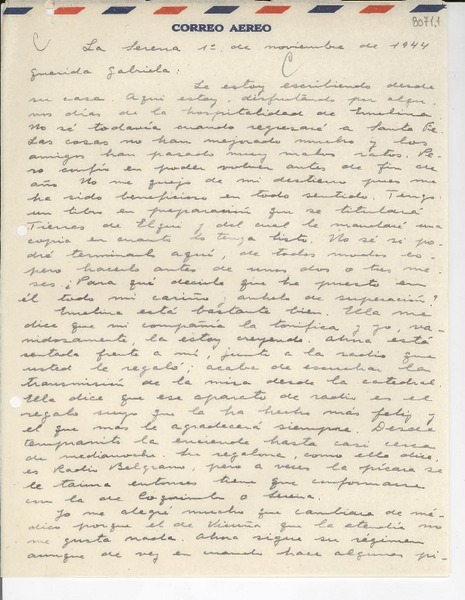 807 1,1
CORREO AEREO
La Serena 1º de noviembre de 1944
Querida Gabriela:
Le estoy escribiendo desde
su casa. Aquí estoy, disfrutando por algu-
nos días de la hospitalidad de Emelina
No sé todavía cuando regresaré a Santa Fe
Las cosas no han mejorado mucho y los
amigos han pasado muy malos ratos. Pe-
ro confío en poder volver antes de fin de
año. No me quejo de mi destierro pues me
ha sido beneficioso en todo sentido. Tengo
un libro en preparación que se titulará
Tierras de Elqui y del cual le mandaré una
copia en cuanto lo tenga listo. No sé si po-
dré terminarlo aquí, de todos modos es-
pero hacerlo antes de unos dos o tres me-
ses ¿Para qué decirle que he puesto en
él todo mi cariño y anhelo de superación?
Emelina está bastante bien. Ella me
dice que mi compañía la tonifica y yo, va-
nidosamente, la estoy creyendo. Ahora está
sentada frente a mí, junto a la radio que
usted le regaló; acaba de escuchar la
transmisión de la misa desde la catedral.
Ella dice que ese aparato de radio es el
regalo suyo que la ha hecho más feliz y
el que más le agradecerá siempre. Desde
tempranito la enciende hasta casi cerca
de medianoche. Su regalona, como ella dice,
es Radio Belgrano, pero a veces la pícara se
le taima entonces tiene que conformarse
con la de Coquimbo o Serena.
Yo me alegré mucho que cambiara de mé-
dico porque el de Vicuña que la atendía no
me gusta nada. Ahora sigue su régimen
aunque de vez en cuando hace algunos pi-